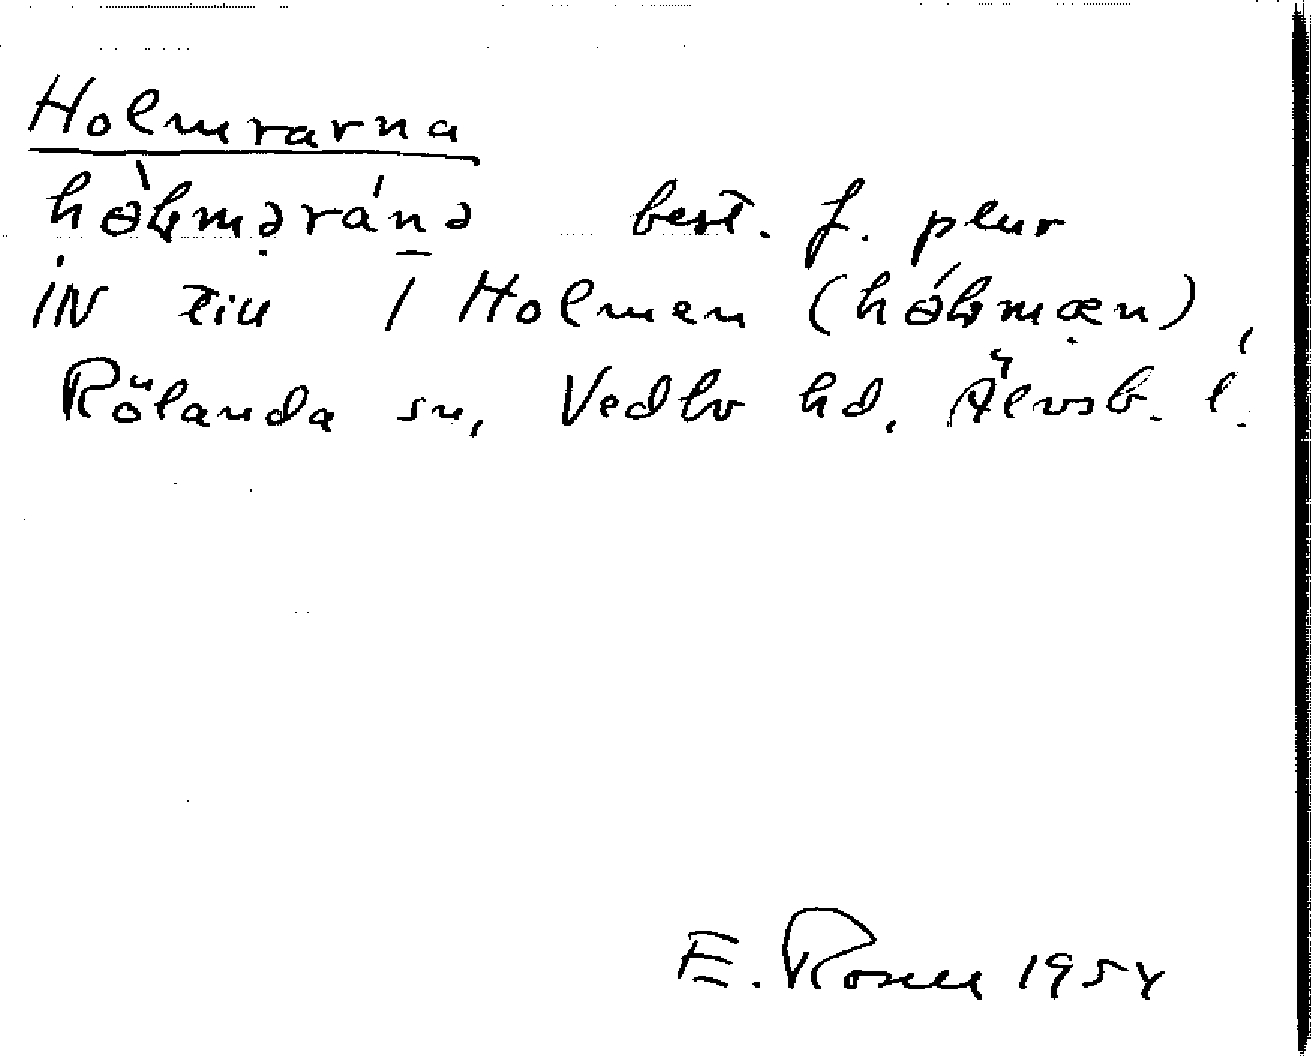 Holmrarna
hə̀ɫməránə best. f. plur
IN till 1 Holman (hə́ɫmæn),
Rölanda sn, Vedbo hd, Älvsb. l.
E. Rosell 1954